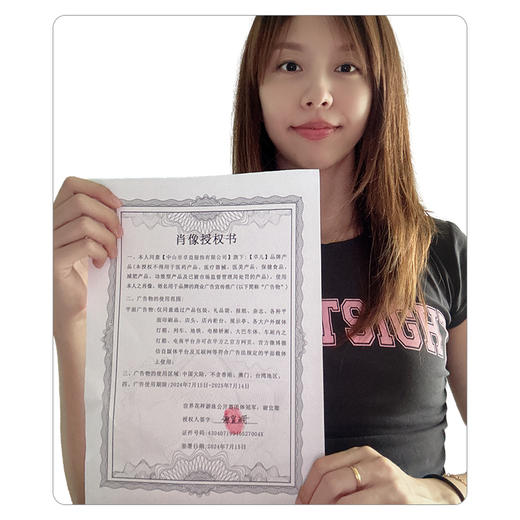 肖像授权书
一、本人同意【中山市卓益服饰有限公司】旗下:【卓儿】品牌产
品(本授权不得用于医药产品、医疗器械、医美产品、保健食品、
减肥产品、功效型产品及已被市场监督管理局处罚的产品),使用
本人之肖像、姓名用于品牌的商业广告宣传推广(以下简称“广告物”)
二、广告物的使用范围:
平面广告物:仅同意通过产品包装、礼品袋、报纸、杂志、各种平
面印刷品、店头、店内柜台、展示亭、各大户外媒体
灯箱、列车、地铁、电梯轿厢、大巴车体、车厢内之
灯箱、电商平台并可在华力之官方网页、官方微博微
信自媒体平台及互联网等符合广告法规定的平面载体
上使用;
三、广告物的使用区域:中国大陆,不含香港、澳门、台湾地区。
四、广告使用期限:2024年7月15日-2025年7月14日
世界花样游泳公开赛团体冠军:
授权人签字
证件号码:
签署日期:2024年7月15日
TSIGH